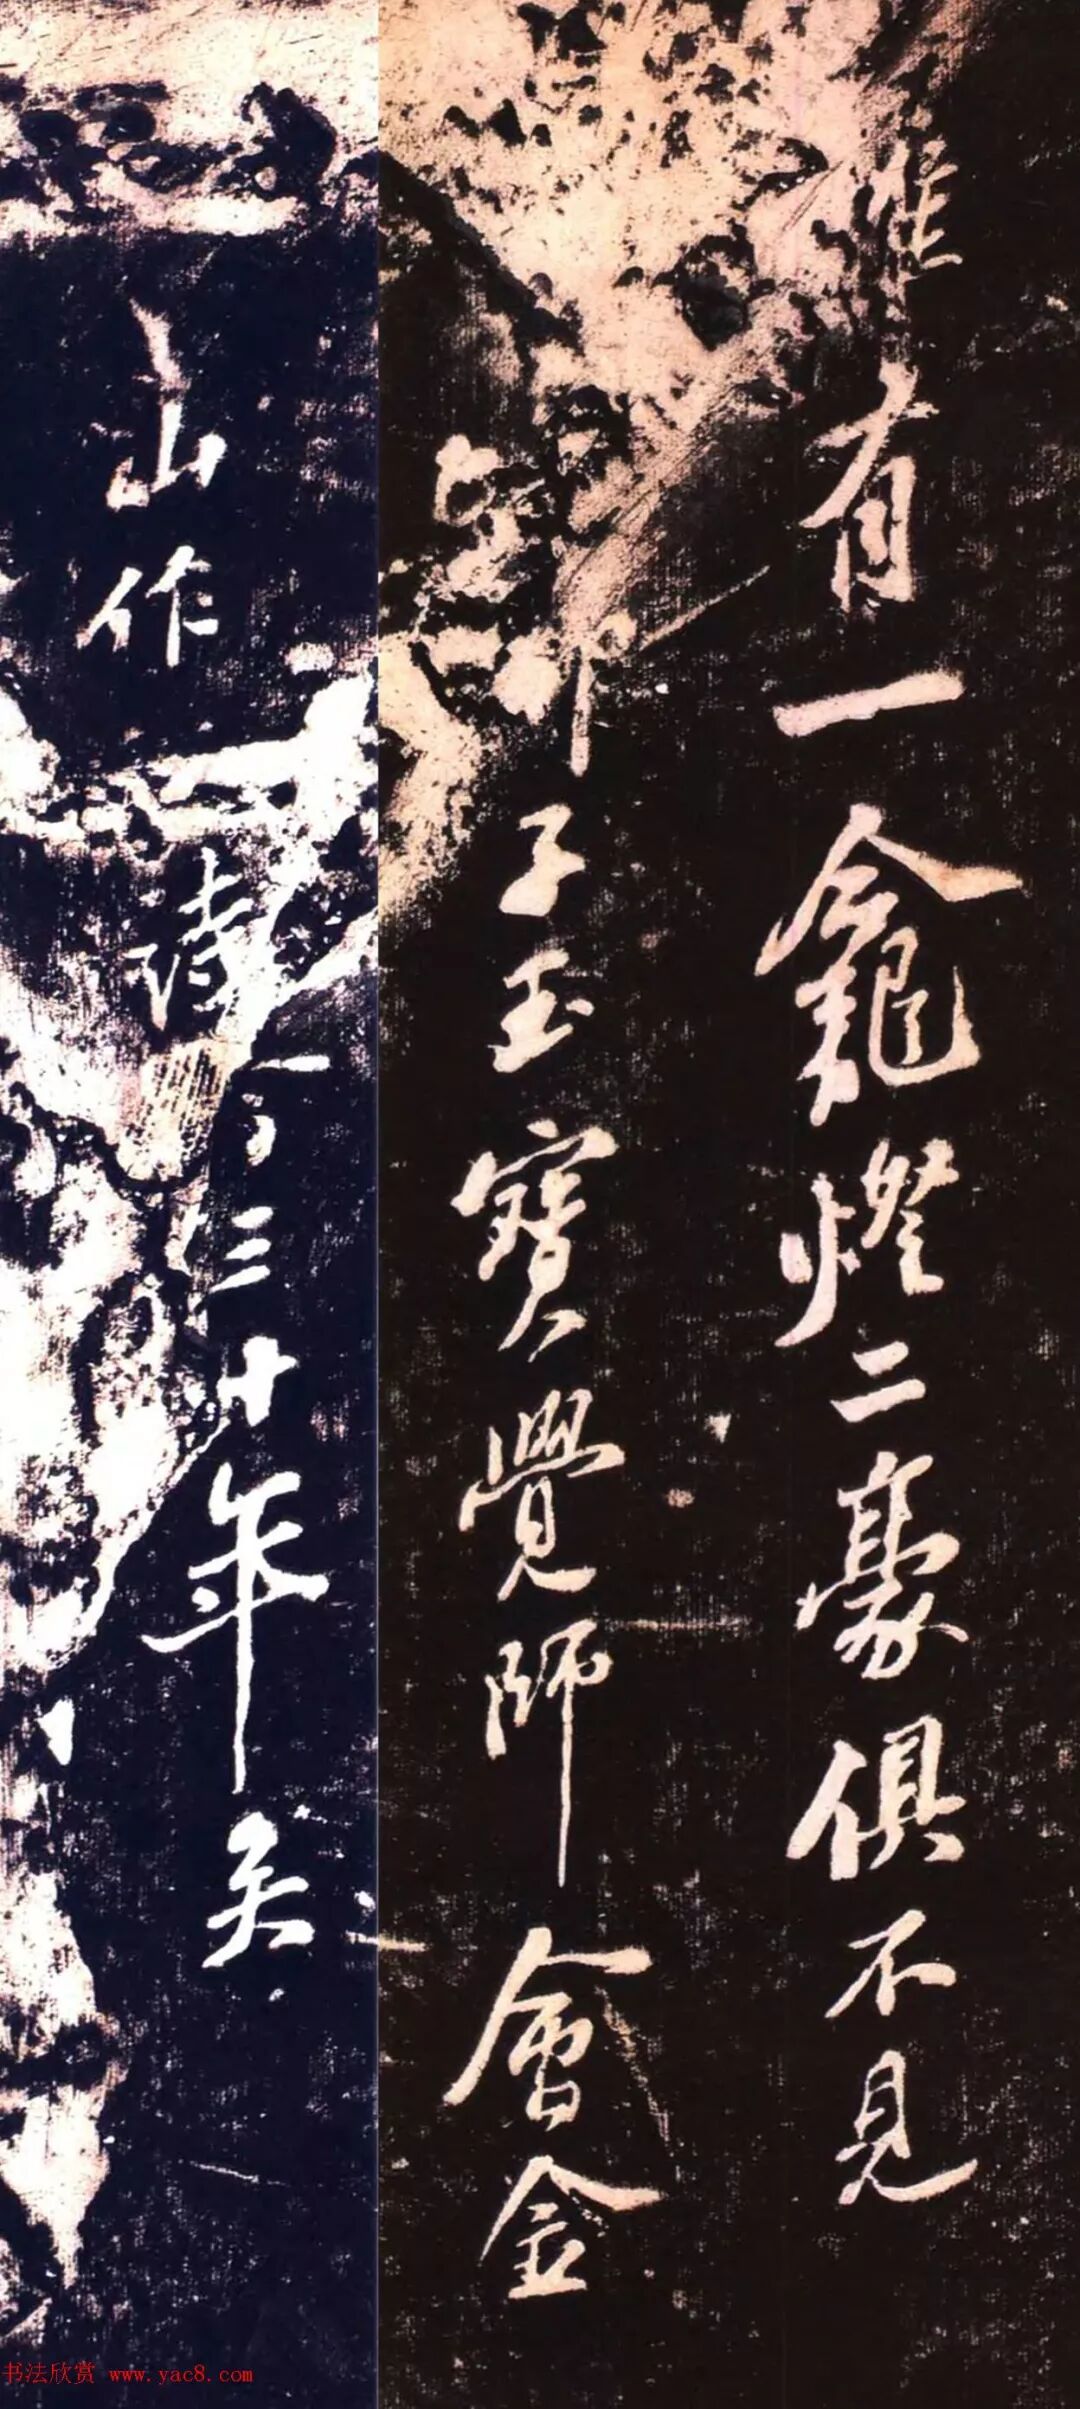 有一龕燈二豪俱不見
子玉寶覺師會金
山作詩三十年矣
书法欣赏 www.yac8.com